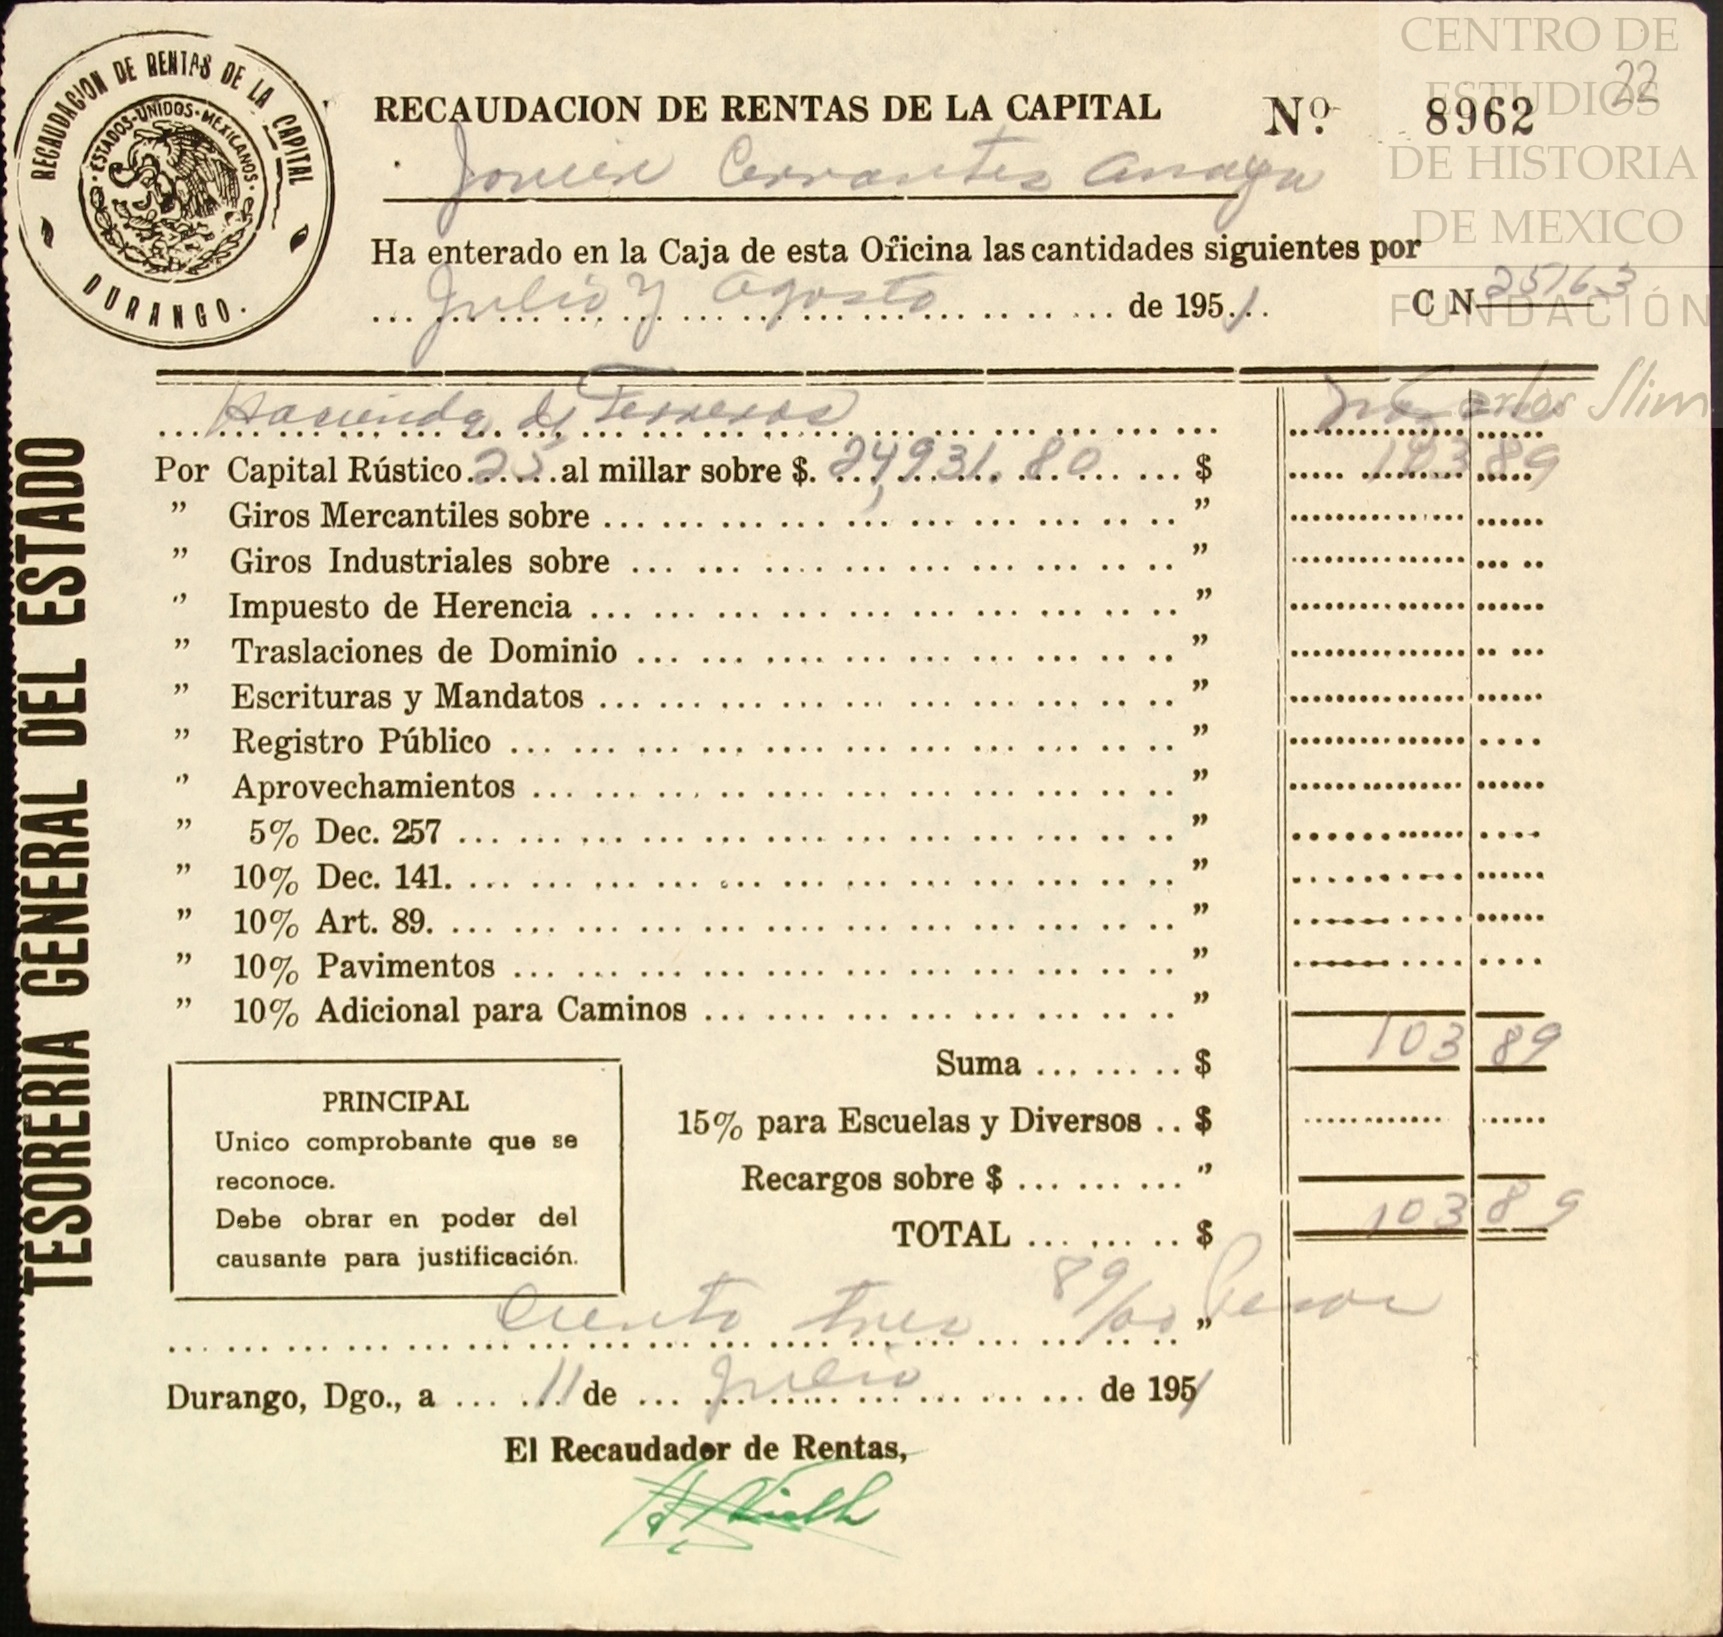 CENTRO DE
ESTUDIOS
DE HISTORIA
DE MEXICO
FUNDACIÓN
Carlos Slim
22
RECAUDACION DE RENTAS DE LA CAPITAL
DURANGO.
ESTADOS-UNIDOS-MEXICANOS
RECAUDACION DE RENTAS DE LA CAPITAL Nº. 8962
Javier Cervantes Anaya
Ha enterado en la Caja de esta Oficina las cantidades siguientes por
Julio y Agosto de 1951 C N 25163
TESORERIA GENERAL DEL ESTADO
Hacienda de Ferreros
Por Capital Rústico 25 al millar sobre $. 24,931.80 $ 103 89
" Giros Mercantiles sobre "
" Giros Industriales sobre "
" Impuesto de Herencia "
" Traslaciones de Dominio "
" Escrituras y Mandatos "
" Registro Público "
" Aprovechamientos "
" 5% Dec. 257 "
" 10% Dec. 141. "
" 10% Art. 89. "
" 10% Pavimentos "
" 10% Adicional para Caminos "
Suma $ 103 89
15% para Escuelas y Diversos $
Recargos sobre $ "
TOTAL $ 103 89
PRINCIPAL
Unico comprobante que se
reconoce.
Debe obrar en poder del
causante para justificación.
Ciento tres 89/00 Pesos "
Durango, Dgo., a 11 de Julio de 1951
El Recaudador de Rentas,